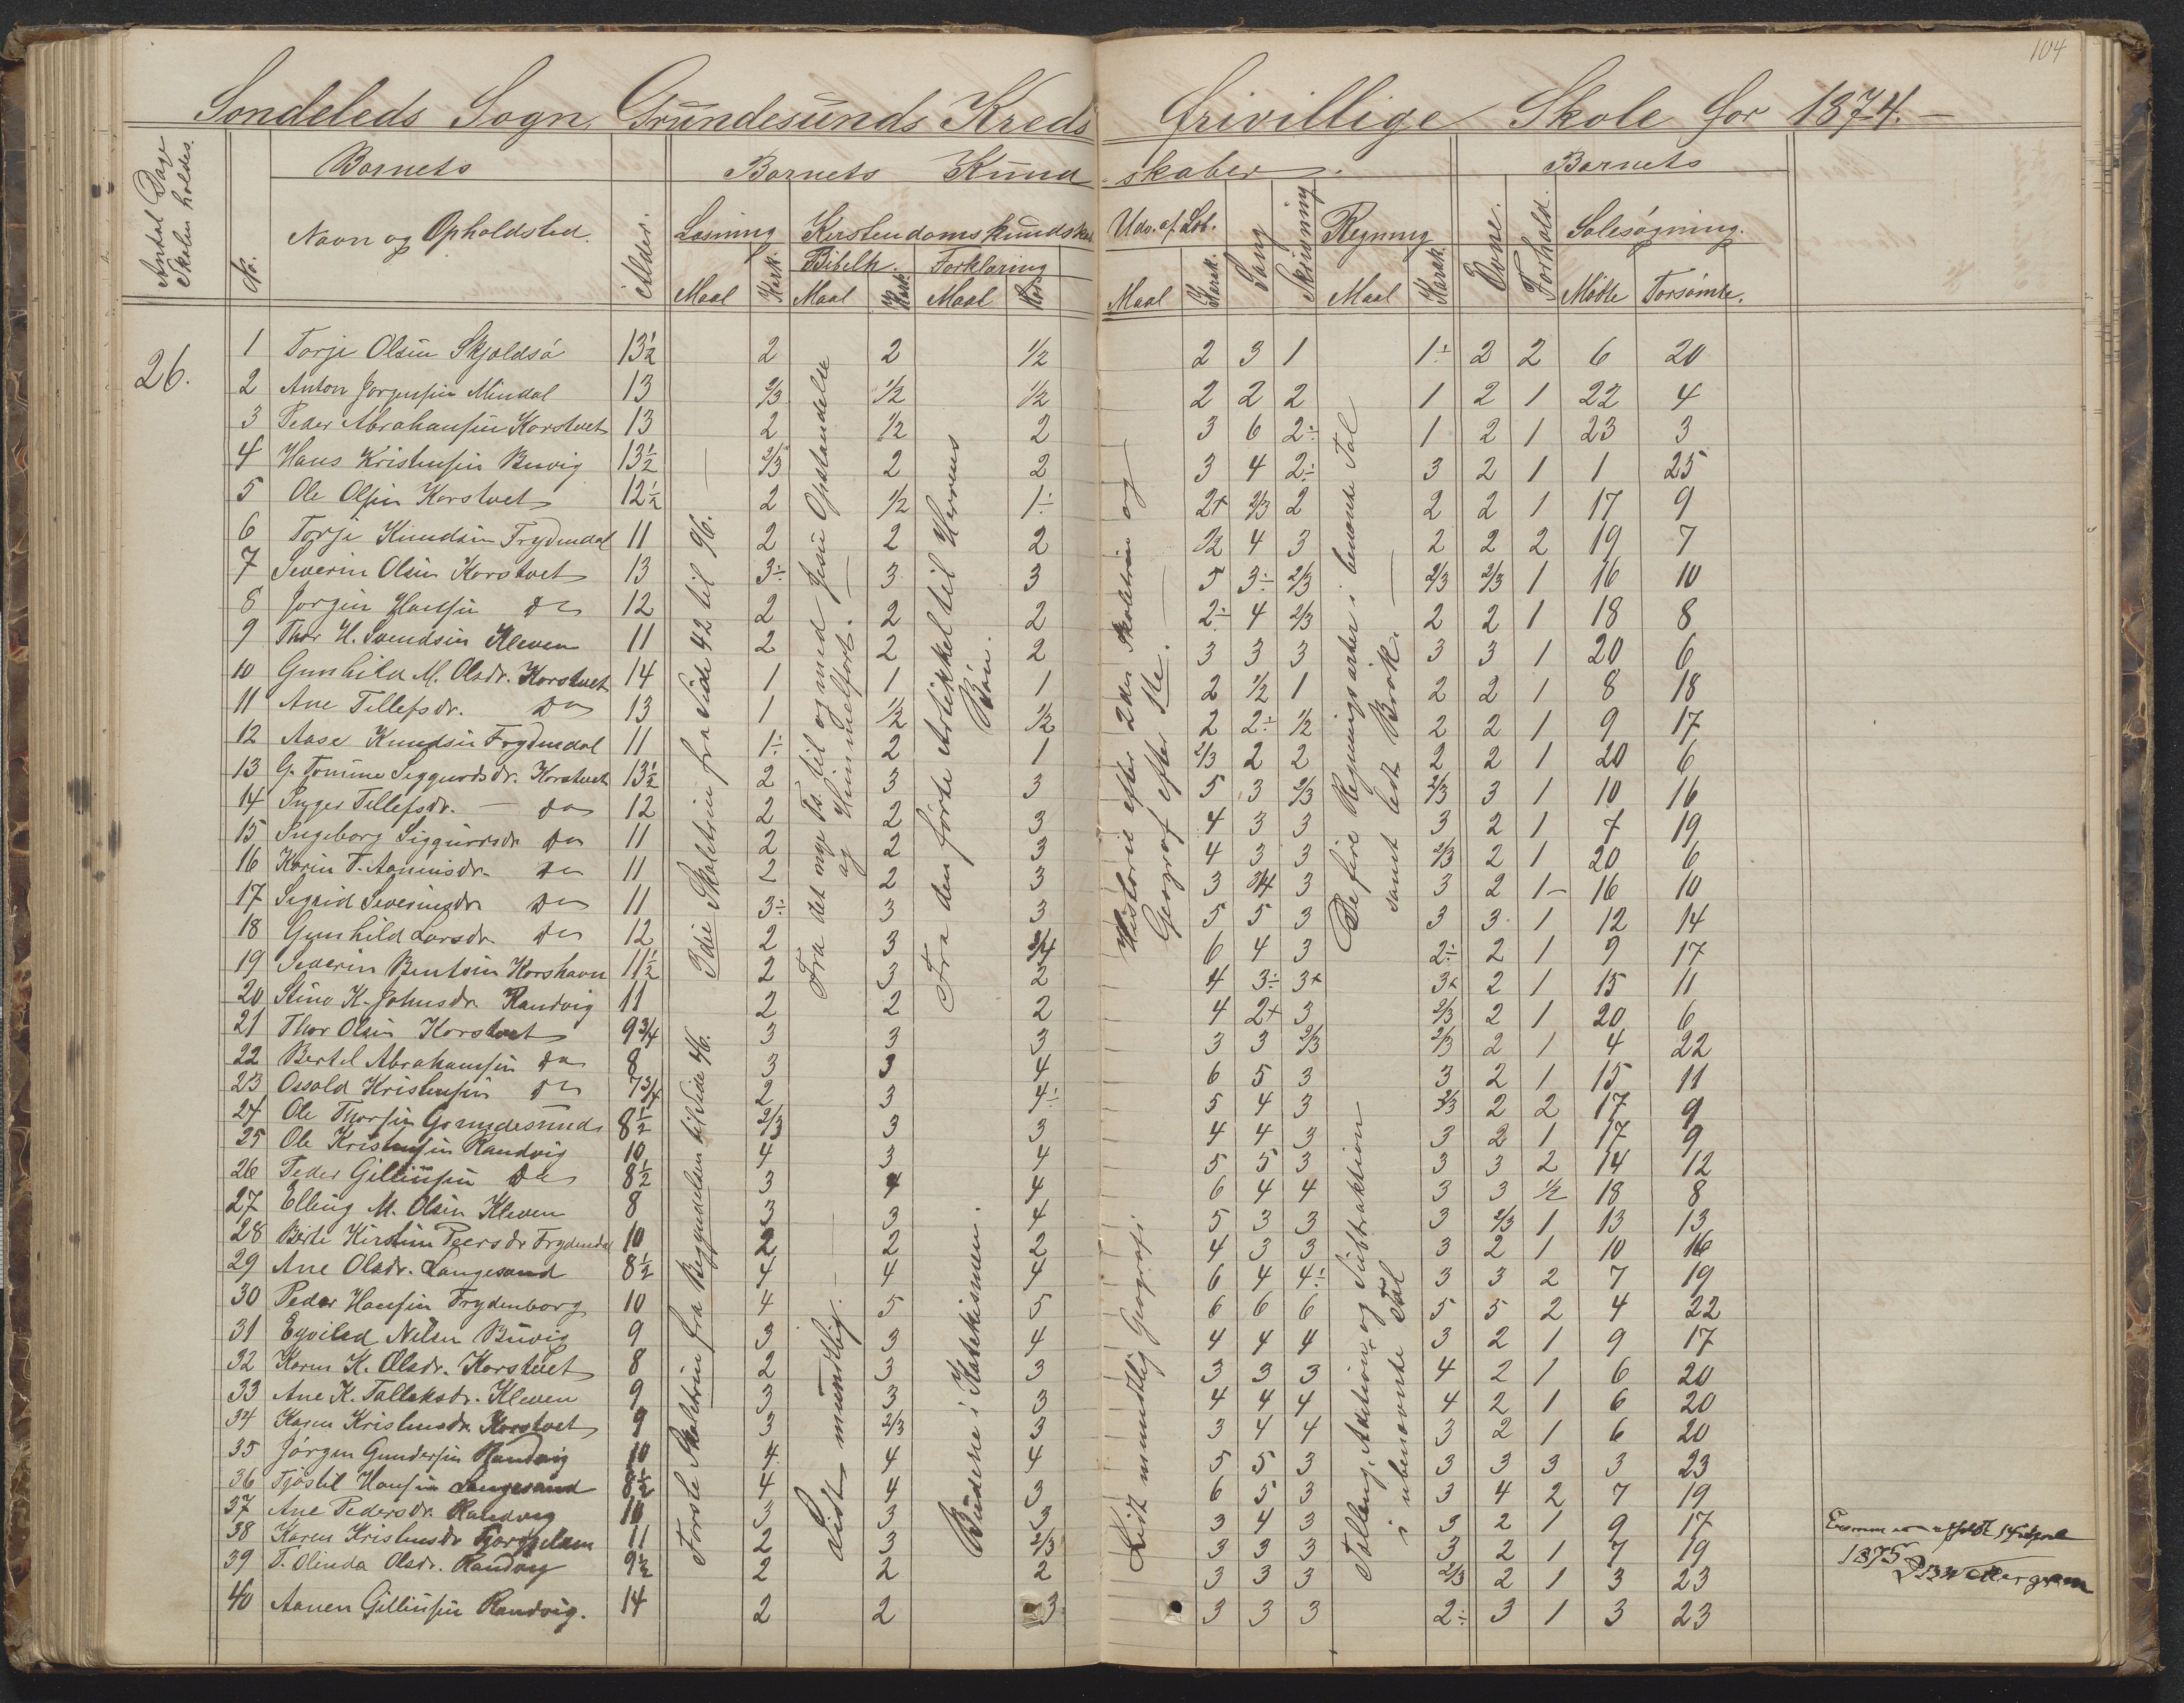 104
Sondeleds Sogn, Grundesunds Kreds frivillige Skole for 1874.
Antal Dage Skolen holdes.
No.
Barnets
Navn og Opholdsted.
Alder.
Barnets Kundskaber.
Læsning
Kristendomskundskab
Bibelh. Forklaring
Maal Kark. Maal Kark. Maal Kar.
Udv. af Læb.
Maal Karak.
Sang
Skrivning
Regning
Maal Karak.
Barnets
Evne.
Forhold.
Solesøgning.
Mødte Forsømte.
26.
1 Torje Olsen Skjoldså 13½ 2 2 1/2 2 3 1 1÷ 2 2 6 20
2 Anton Jorgensen Mindal 13 2/3 1/2 1/2 2 2 2 1 2 1 22 4
3 Peder Abrahamsen Korstvet 13 2 1/2 2 3 6 2÷ 1 2 1 23 3
4 Hans Kristensen Buvig 13½ 2/3 2 2 3 4 2÷ 3 2 1 1 25
5 Ole Olsen Korstvet 12½ 2 1/2 1÷ 2+ 2/3 2 2 2 1 17 9
6 Torje Knudsen Frydendal 11 2 2 2 1/2 4 3 2 2 2 19 7
7 Severin Olsen Korstvet 13 3÷ 3 3 5 3÷ 2/3 2/3 2/3 1 16 10
8 Jorgen Hansen Do 12 2 2 2 2÷ 4 2/3 2 2 1 18 8
9 Thor H. Svendsen Kleven 11 2 2 2 3 3 3 3 3 1 20 6
10 Gunhild M. Olsdr. Korstvet 14 1 1 1 2 1/2 1 2 2 1 8 18
11 Ane Tellefsdr. Do 13 1 1/2 1/2 2 2÷ 1/2 2 2 1 9 17
12 Aase Knudsen Frydendal 11 1÷ 2 1 2/3 2 2 2 2 1 20 6
13 G. Tomine Siggurdsdr. Korstvet 13½ 2 3 3 5 3 2/3 2/3 3 1 10 16
14 Inger Tellefsdr. — Do 12 2 2 3 4 3 3 3 2 1 7 19
15 Ingeborg Siggurdsdr Do 11 2 2 3 4 3 3 2/3 2 1 20 6
16 Karen T. Aanensdr. Do 11 2 2 3 3 3/4 3 3 2 1- 16 10
17 Sigrid Severinsdr Do 11 3÷ 3 3 5 5 3 3 3 1 12 14
18 Gunhild Larsdr. Do 12 2 3 3/4 6 4 3 2÷ 2 1 9 17
19 Severin Bentsen Korshavn 11½ 2 3 2 4 3÷ 3+ 3+ 2 1 15 11
20 Stine K. Johnsdr. Randvig 11 2 2 2 4 2+ 3 2/3 2 1 20 6
21 Thor Olsen Korstvet 9 3/4 3 3 3 3 3 2/3 2/3 2 1 4 22
22 Bertel Abrahamsen Do 8 3 3 4 6 5 3 3 2 1 15 11
23 Ossold Kristensen Do 7 3/4 2 3 4÷ 5 4 3 2/3 2 2 17 9
24 Ole Thorsen Grundesund 8½ 2/3 3 3 4 4 3 3 2 1 17 9
25 Ole Kristensen Randvig 10 4 3 4 5 5 3 3 3 2 14 12
26 Peder Gellinsen Do 8½ 3 4 4 6 4 4 3 3 1/2 18 8
27 Elling M. Olsen Kleven 8 3 3 4 5 3 3 3 2/3 1 13 13
28 Berte Kirstine Peersdr Frydendal 10 2 2 2 4 3 3 3 2 1 10 16
29 Ane Olsdr. Langesand 8½ 4 4 4 6 4 4÷ 3 3 2 7 19
30 Peder Hansen Frydenborg 10 4 5 5 6 6 6 5 5 2 4 22
31 Egvilad Nilsen Buvig 9 3 3 4 4 4 4 3 2 1 9 17
32 Karen K. Olsdr. Korstvet 8 2 3 3 3 3 3 4 2 1 6 20
33 Ane K. Talleksdr. Kleven 9 3 3 3 4 4 4 4 2 1 6 20
34 Karen Kristensdr. Korstvet 9 3 2/3 3 3 4 4 3 2 1 6 20
35 Jörgen Gundersen Randvig 10 4 4 4 5 5 3 3 3 3 3 23
36 Tjöstel Hansen Langesand 8½ 4 4 3 6 5 3 3 4 2 7 19
37 Ane Pedersdr. Randvig 10 3 3 3 3 4 3 3 2 1 9 17
38 Karen Kristensdr 11 2 3 2/3 3 3 3 3 2 1 7 19
39 T. Olinda Olsdr. Randvig 9½ 2 2 2 3 3 3 2/3 2 1 3 23
40 Aanen Gellinsen Randvig. 14 2 2 3 3 3 3 2÷ 3 1 3 23
3die Skoletrin fra Side 42 til 96.
Første Skoletrin fra Begyndelsen til Side 46.
Fra det nye Ts. til og med Jesu Opstandelse og Himmelfart.
Lidt mundtlig.
Fra den første Artikkel til Herrens Bøn.
Budene i Katekismen.
Historie efter 2den Skoletrin og Geograf efter 1ste.
Lidt mundtlig Geografi
De fire Regningsarter i benævnte Tal samt lidt Brøk.
Talleng, Adition og Subtraktion i ubenævnte Tal
Examen afholdt 14 April
1875